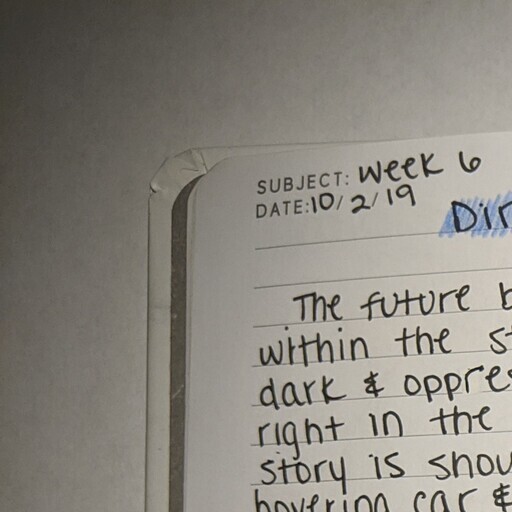 SUBJECT: Week 6
DATE: 10/2/19
Dir
The future b
within the st
dark & oppres
right in the
story is show
hovering car &